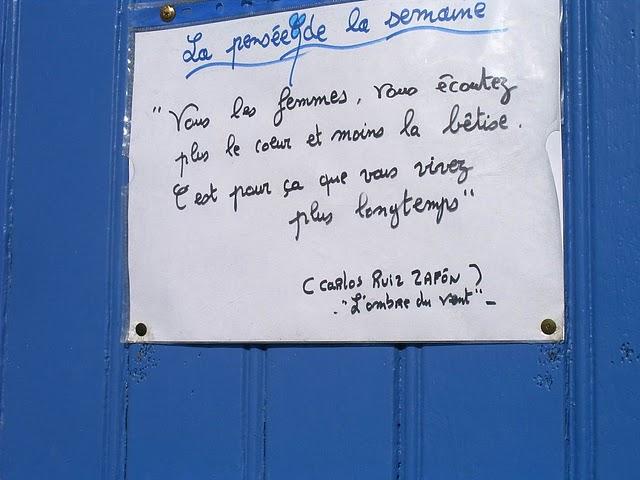 La pensée de la semaine
"Vous les femmes, vous écoutez
plus le coeur et moins la bêtise.
C'est pour ça que vous vivez
plus longtemps"
(CARLOS RUIZ ZAFÓN)
."L'ombre du vent"-